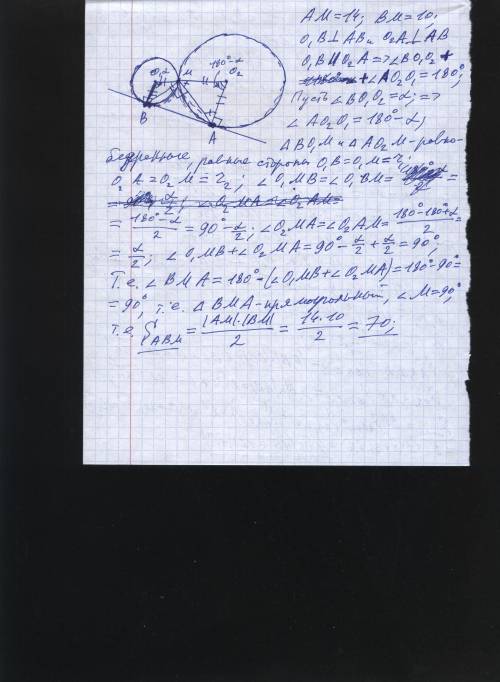 AM=14; BM=10;
O₁B⊥AB и O₂A⊥AB
O₁B∥O₂A=>∠BO₁O₂+
+∠AO₂O₁=180°;
Пусть ∠BO₁O₂=α;=>
∠AO₂O₁=180°-α;
△BO₁M и △AO₂M-равно-
бедренные, равные стороны O₁B=O₁M=r₁;
O₂A=O₂M=r₂; ∠O₁MB=∠O₁BM=
=180°-α/2=90°-α/2; ∠O₂MA=∠O₂AM=180°-180°+α/2=
=α/2; ∠O₁MB+∠O₂MA=90°-α/2+α/2=90°;
Т.е. ∠BMA=180°-(∠O₁MB+∠O₂MA)=180°-90°=
=90°, т.е. △BMA-прямоугольный, ∠M=90°,
т.е. S ABM=|AM|·|BM|/2=14·10/2=70;
O₁ α M 180°-α O₂
B
A